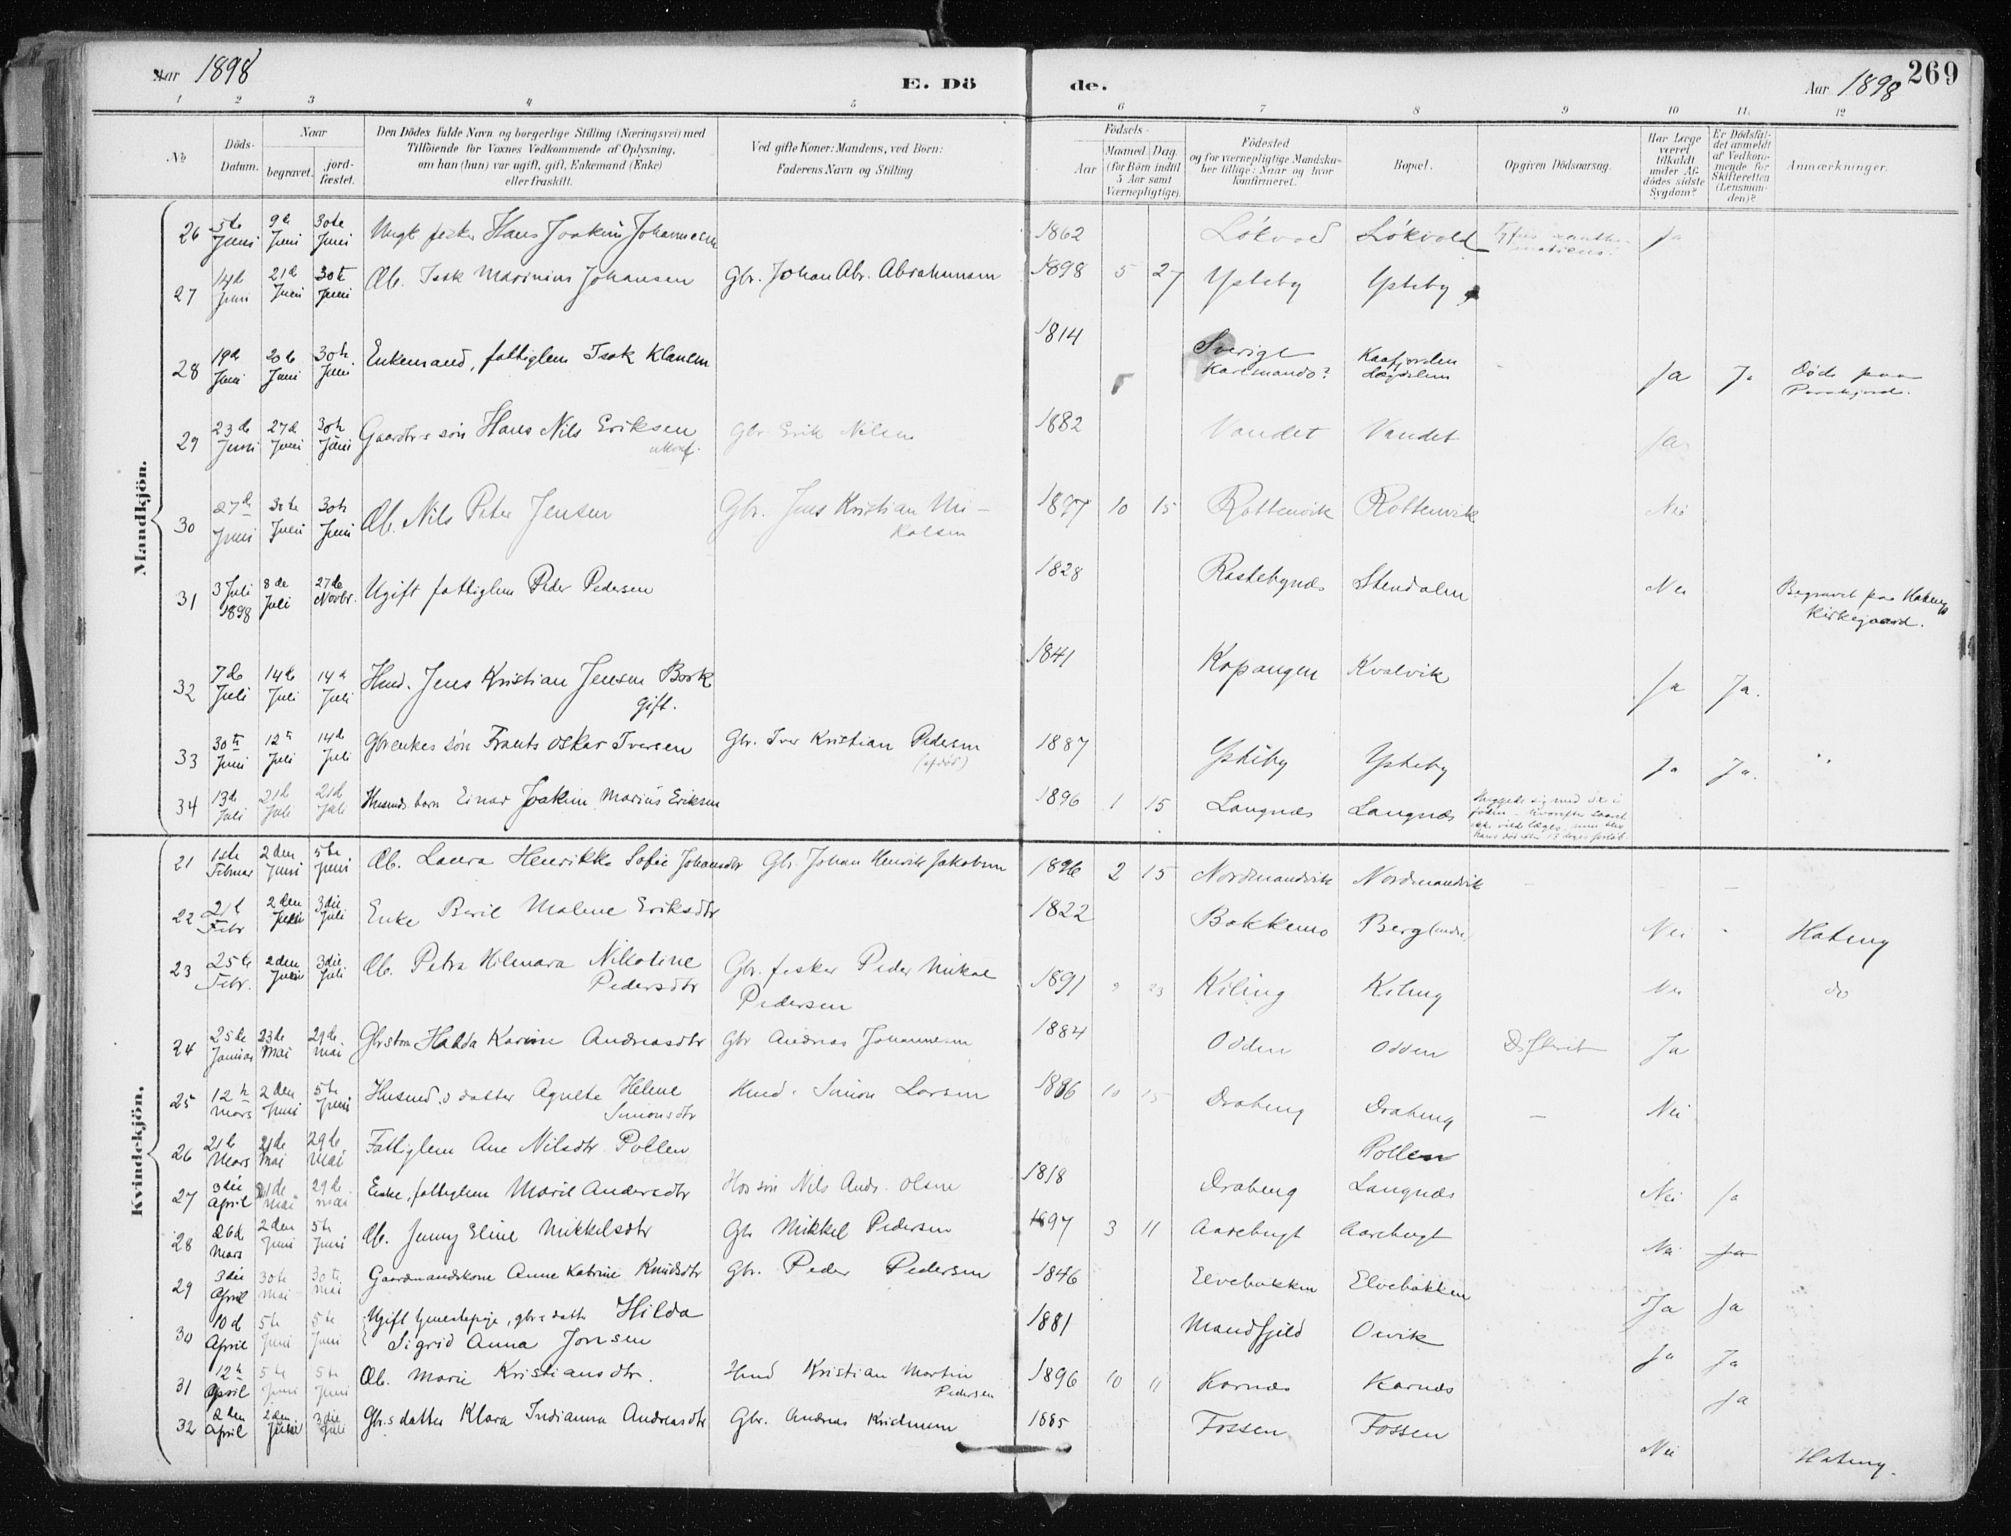 Aar 1898
E. Dö de.
Aar 1898
269
1 2 3 4 5 6 7 8 9 10 11. 12
No
Döds-
Datum.
Naar
begravet.
jord-
fæstet.
Den Dödes fulde Navn og borgerlige Stilling (Næringsvei) med
Tilföiende for Voxnes Vedkommende af Oplysning,
om han (hun) var ugift, gift, Enkemand (Enke)
eller fraskilt.
Ved gifte Koner: Mandens, ved Börn:
Faderens Navn og Stilling
Födsels-
Aar
Maaned.
Dag.
(for Börn indtil
5 Aar samt
Værnepligtige).
Födested
og for værnepligtige Mandska-
ber tillige: Naar og hvor
konfirmeret.
Bopæl.
Opgiven Dödsaarsag.
Har Læge
været
tilkaldt
under Af-
dödes sidste
Sygdom?
Er Dödsfal-
det anmeldt
af Vedkom-
mende for
Skifteretten
(Lensman-
den)?
Anmærkninger.
Mandkjön.
26 5te Juni 9de Juni 30te Juni Ungk. fisker Hans Joakim Johannesen 1862 Løkvold Løkvold Ja
27 14de Juni 21de Juni 30te Juni Æb. Isak Marinius Johansen Gbr. Johan Abr. Abrahamsen 1898 5 27 Ysteby Ysteby
28 19de Juni 20de Juni 30te Juni Enkemand, fattiglem Isak Klausen 1814 Sverige Karesuando? Kaafjorden Ja Ja Døde paa
29 23de Juni 27de Juni 30te Juni Gaardbr.s søn Hans Nils Eriksen ukonf. Gbr. Erik Nilsen 1882 Vandet Vandet Ja
30 27de Juni 30te Juni 30te Juni Æb. Nils Peter Jensen Gbr. Jens Kristian Ni-
kolsen 1897 10 15 Rottenvik Rottenvik Nei
31 3 Juli 1898 8de Juli 27de Novbr. Ugift fattiglem Peder Pedersen 1828 Rastebynæs Stendalen Nei Begravet paa Hateng
Kirkegaard.
32 7de Juli 14de Juli 14de Juli Hmd. Jens Kristian Jensen Bork
gift. 1841 Kopangen Kvalvik Ja Ja.
33 30te Juni 12te Juli 14de Juli Gbr enkes søn Frants Oskar Iversen Gbr. Iver Kristian Pedersen
(afdød) 1887 Ysteby Ysteby Ja Ja. "
34 13de Juli 21de Juli 21de Juli Husmds barn Einar Joakim Marius Eriksen 1896 1 15 Langnæs Langnæs
Kvindekjön.
21 1ste Februar 2den Juni 5te Juni Æb. Laura Henrikke Sofie Johansdtr Gbr. Johan Henrik Jakobsen 1896 2 15 Nordmandvik Nordmandvik
22 21de Febr 2den Juli 3die Juli Enke Beril Malene Eriksdtr 1822 Bakkemo Berglundi Nei Hateng
23 25de Febr. 2den Juli 3die Juli Æb. Petra Hilmara Nikoline
Pedersdtr Gbr. fisker Peder Mikal
Pedersen 1891 9 23 Kiling Kiling Nei do
24 25de Januar 23de Mai 29de Mai Gbrs barn Halda Karine Andreasdtr Gbr Andreas Johannesen 1884 Odden Odden Difterit Ja
25 12te Mars 2den Juni 5te Juni Husmd.s datter Agnete Helene
Simonsdtr Hmd. Simon Larsen 1886 10 15 Drabeng Drabeng Nei
26 21de Mars 21de Mai 29de Mai Fattiglem Ane Nilsdtr Pollen Pollen
27 3die April 21de Mai 29de Mai Enke, fattiglem Marit Andersdtr Hos søn Nils Ands. Olsen 1818 Drabeng Langnæs Nei Ja
28 26de Mars 2den Juni 5te Juni Æb. Jenny Eline Mikkelsdtr Gbr Mikkel Pedersen 1897 3 11 Aarebugt Aarebugt Nei Ja
29 3die April 30te Mai 30te Mai Gaardmandskone Anne Katrine Knudsdtr Gbr. Peder Pedersen 1846 Elvebakken Elvebakken Ja Ja
30 10de April 5te Juni 5te Juni Ugift tjenestepige, gbr.s datter Hilda
Sigrid Anna Jonsen 1881 Mandfjeld Ja Ja
31 12te April 5te Juni 5te Juni Æb. Marie Kristiansdtr. Hmd Kristian Martin
Pedersen 1896 10 11 Karnæs Karnæs Ja
32 2den April 2den Juli 3die Juli Gbr.s datter Klara Indianna Andreasdtr Gbr. Andreas 1885 Fossen Fossen Nei Hateng.